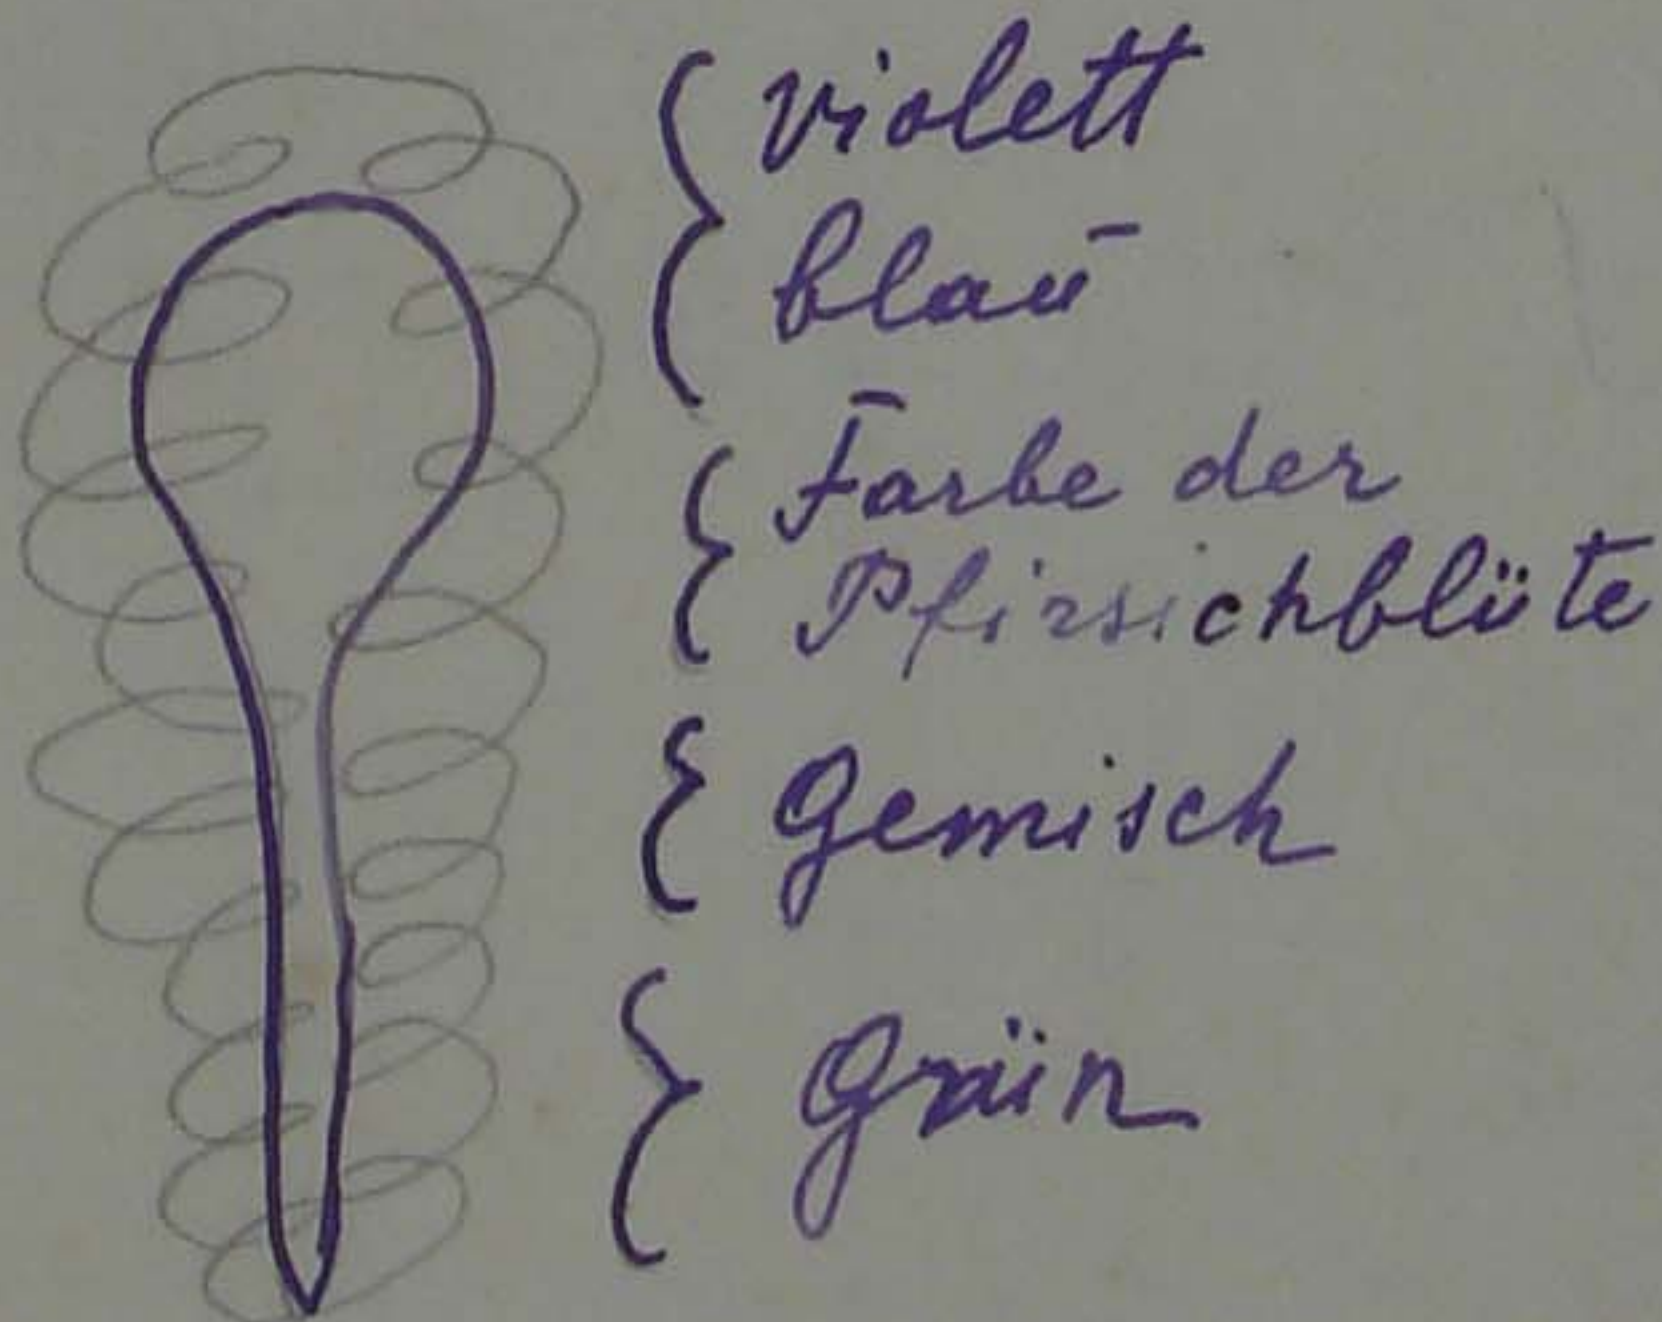 violett
blau
Farbe der
Pfirsichblüte
Gemisch
Grün